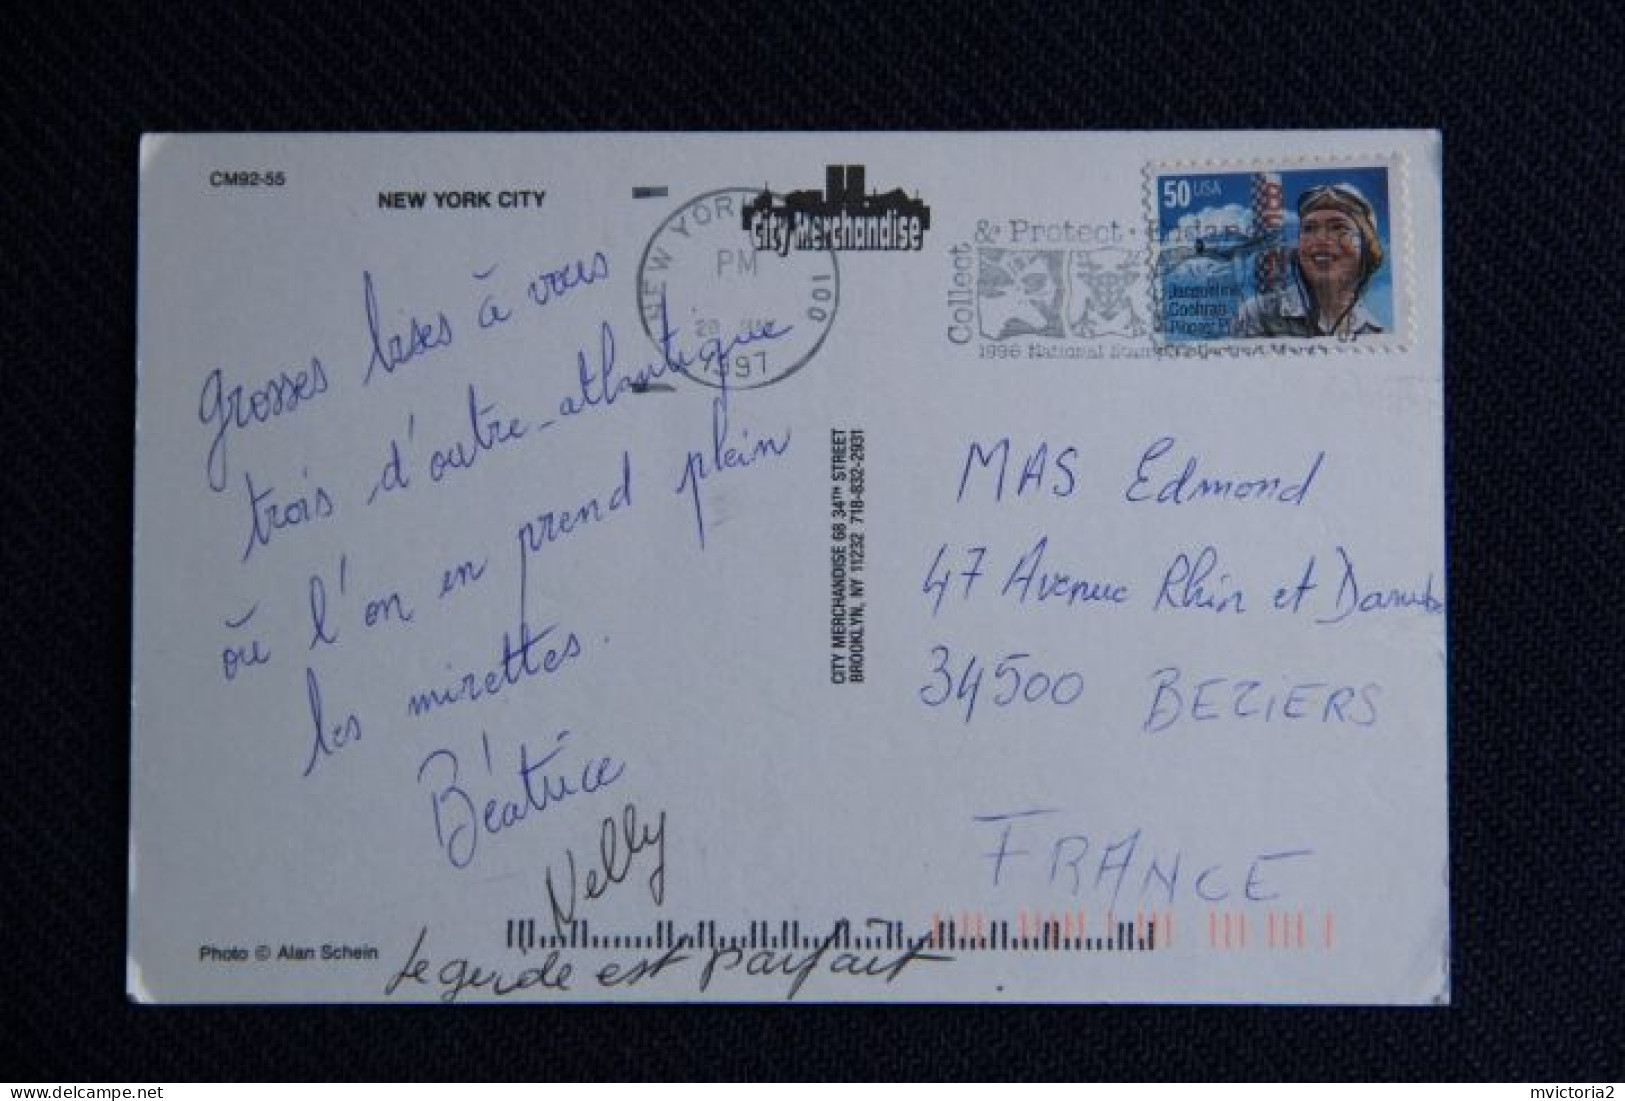 CM92-55
NEW YORK CITY
City Merchandise
NEW YORK
PM
1997
100
Collect & Protect
1996 National Stamp
50 USA
Jacqueline
Cochran
Pioneer Pilot
Grosses bises à vous
trois d'outre-athlantique
où l'on en prend plein
les mirettes.
Béatrice
Nelly
Le guide est parfait.
Photo © Alan Schein
CITY MERCHANDISE 68 34TH STREET
BROOKLYN, NY 11232 718-832-2931
MAS Edmond
47 Avenue Rhin et Danube
34500 BEZIERS
FRANCE
mvictoria2